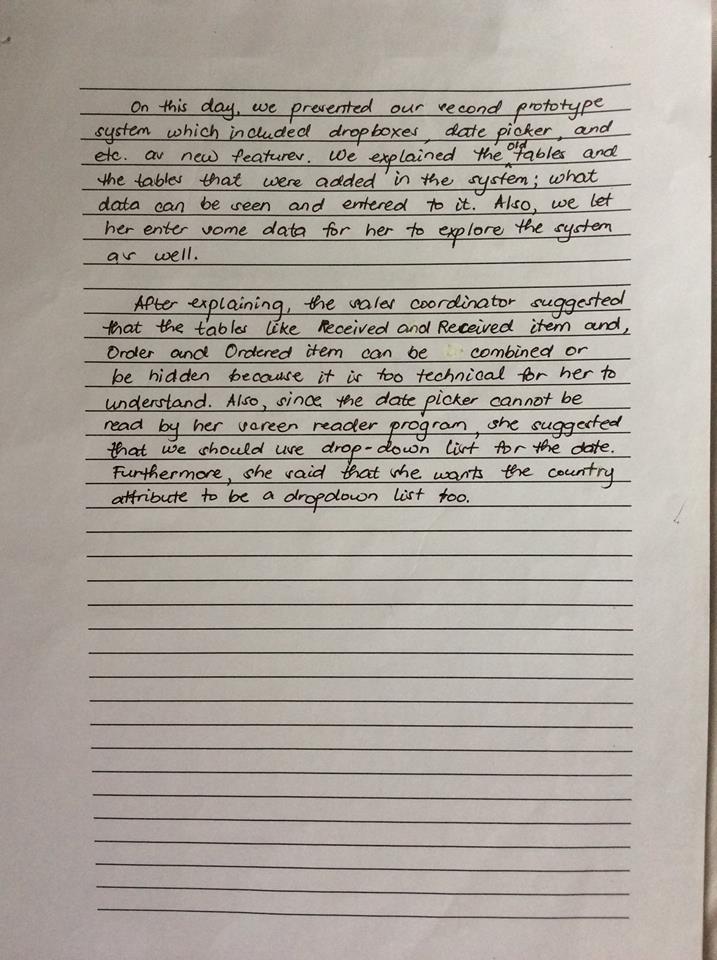 On this day, we presented our second prototype
system which included dropboxes, date picker, and
etc. as new features. We explained the old tables and
the tables that were added in the system; what
data can be seen and entered to it. Also, we let
her enter some data for her to explore the system
as well.
After explaining, the sales coordinator suggested
that the tables like Received and Received item and,
Order and Ordered item can be combined or
be hidden because it is too technical for her to
understand. Also, since the date picker cannot be
read by her screen reader program, she suggested
that we should use drop-down list for the date.
Furthermore, she said that she wants the country
attribute to be a dropdown list too.